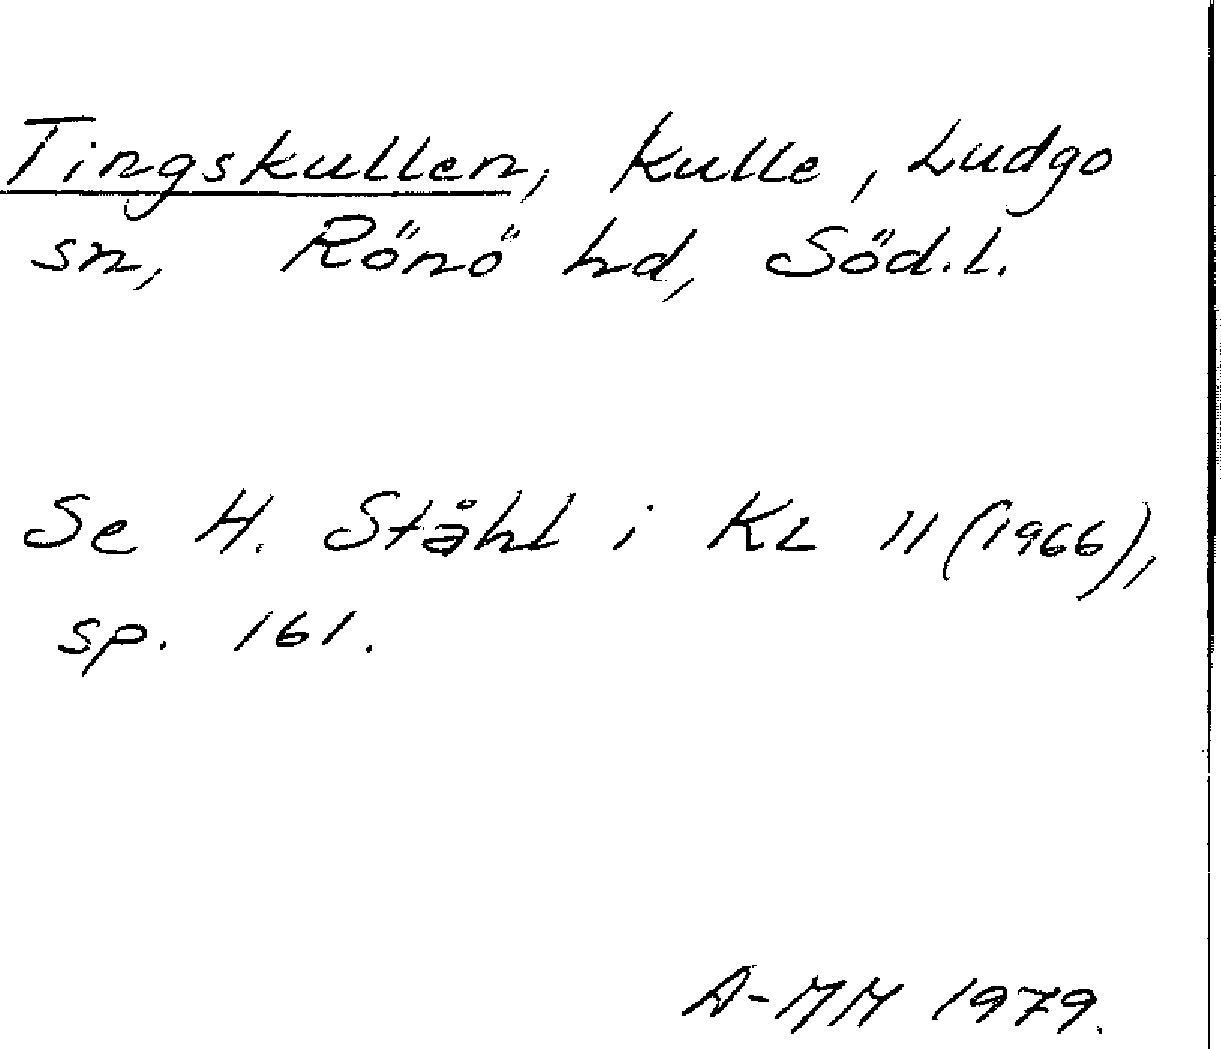 Tingskullen, kulle, Ludgo
sn, Rönö hd, Söd.l.
Se H. Ståhl i KL 11 (1966),
sp. 161.
A-MM 1979.